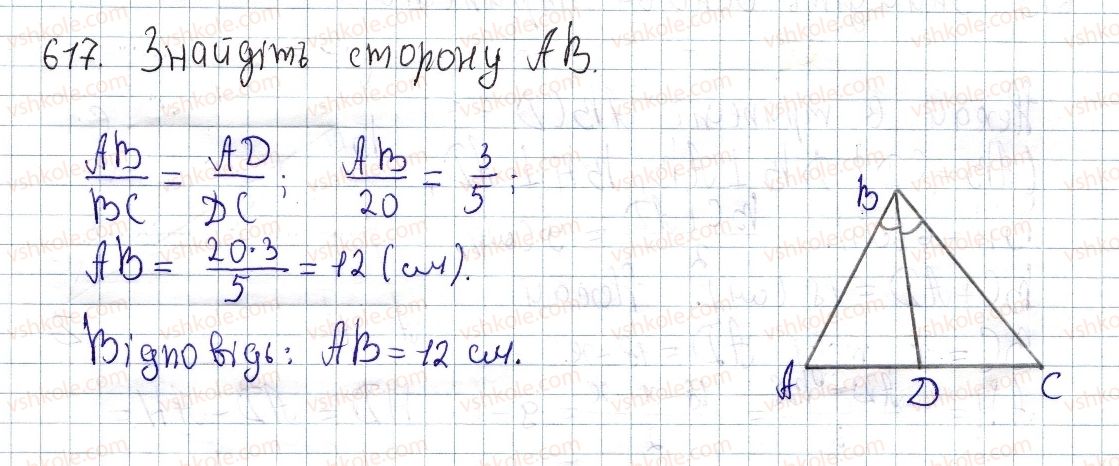 617. Знайдіть сторону AB.
AB/BC = AD/DC; AB/20 = 3/5;
AB = 20·3/5 = 12 (см).
Відповідь: AB = 12 см.
B
A D C
vshkole.com